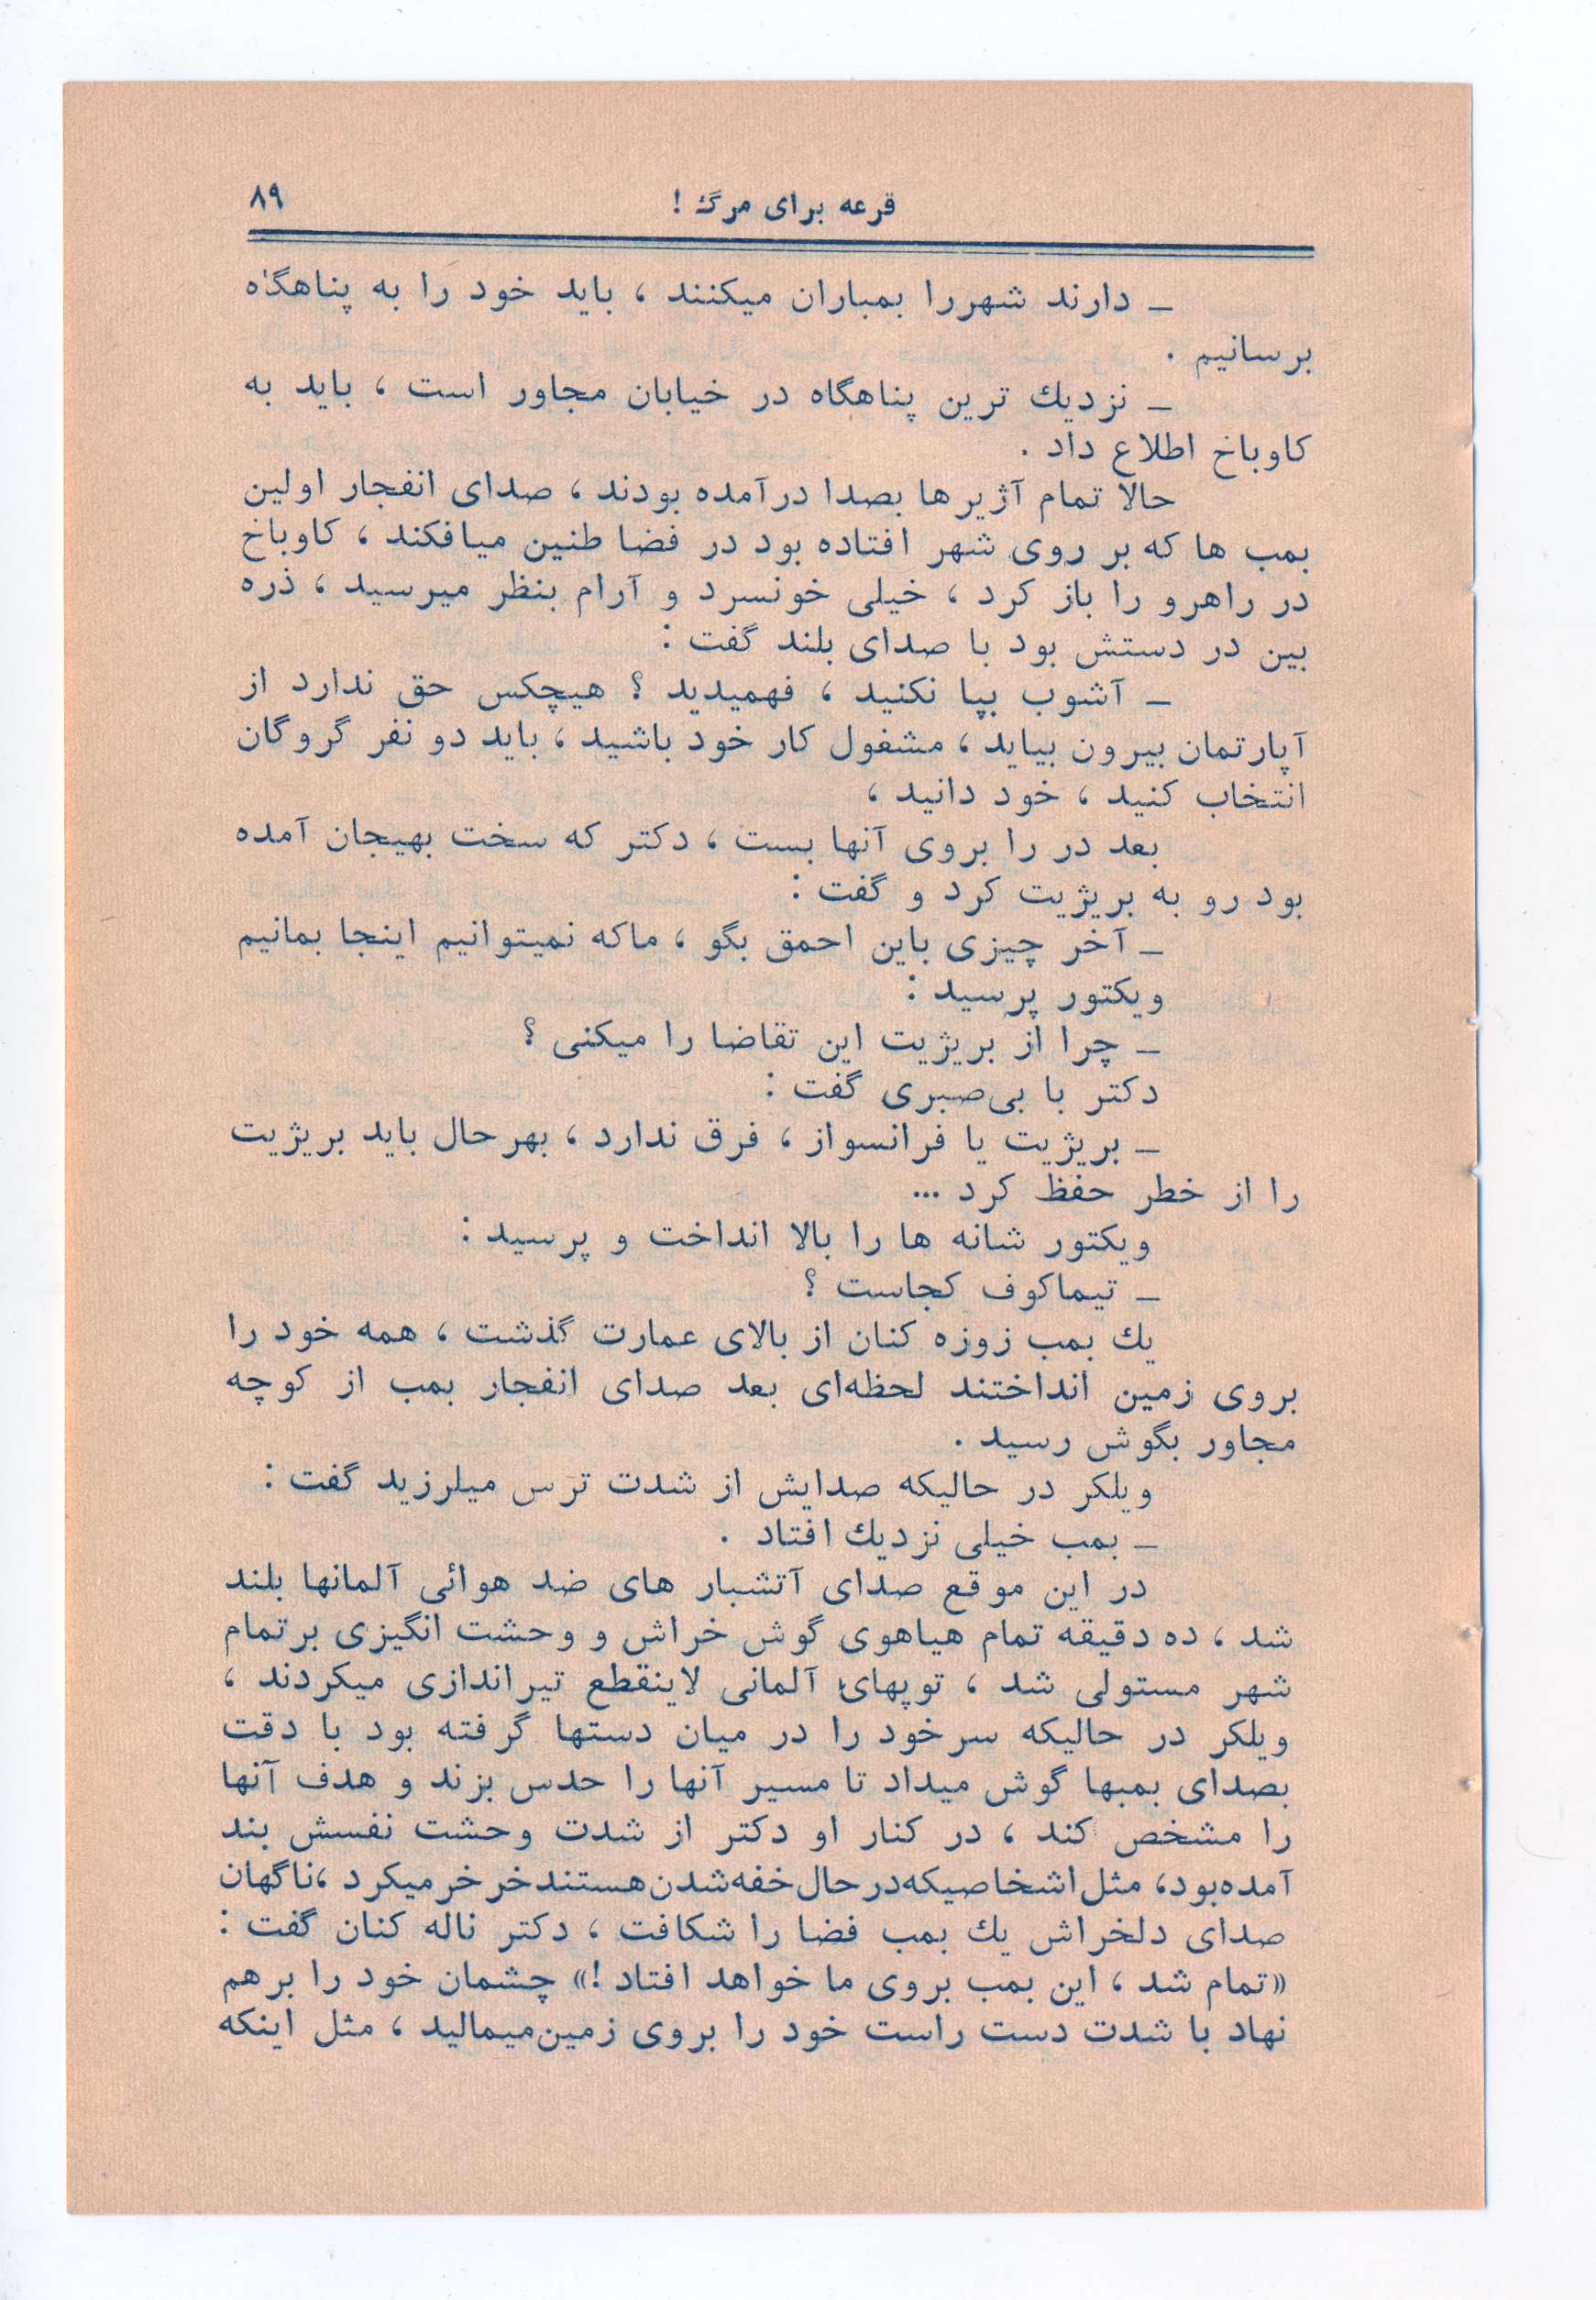 قرعه برای مرگ !
۸۹
ـ دارند شهررا بمباران میکنند ، باید خود را به پناهگاه
برسانیم .
ـ نزدیك ترین پناهگاه در خیابان مجاور است ، باید به
کاوباخ اطلاع داد .
حالا تمام آژیرها بصدا درآمده بودند ، صدای انفجار اولین
بمب ها که بر روی شهر افتاده بود در فضا طنین میافکند ، کاوباخ
در راهرو را باز کرد ، خیلی خونسرد و آرام بنظر میرسید ، ذره
بین در دستش بود با صدای بلند گفت :
ـ آشوب بپا نکنید ، فهمیدید ؟ هیچکس حق ندارد از
آپارتمان بیرون بیاید ، مشغول کار خود باشید ، باید دو نفر گروگان
انتخاب کنید ، خود دانید ،
بعد در را بروی آنها بست ، دکتر که سخت بهیجان آمده
بود رو به بریژیت کرد و گفت :
ـ آخر چیزی باین احمق بگو ، ماکه نمیتوانیم اینجا بمانیم
ویکتور پرسید :
ـ چرا از بریژیت این تقاضا را میکنی ؟
دکتر با بی‌صبری گفت :
ـ بریژیت یا فرانسواز ، فرق ندارد ، بهرحال باید بریژیت
را از خطر حفظ کرد ...
ویکتور شانه ها را بالا انداخت و پرسید :
ـ تیماکوف کجاست ؟
یك بمب زوزه کنان از بالای عمارت گذشت ، همه خود را
بروی زمین انداختند لحظه‌ای بعد صدای انفجار بمب از کوچه
مجاور بگوش رسید .
ویلکر در حالیکه صدایش از شدت ترس میلرزید گفت :
ـ بمب خیلی نزدیك افتاد .
در این موقع صدای آتشبار های ضد هوائی آلمانها بلند
شد ، ده دقیقه تمام هیاهوی گوش خراش و وحشت انگیزی برتمام
شهر مستولی شد ، توپهای آلمانی لاینقطع تیراندازی میکردند ،
ویلکر در حالیکه سرخود را در میان دستها گرفته بود با دقت
بصدای بمبها گوش میداد تا مسیر آنها را حدس بزند و هدف آنها
را مشخص کند ، در کنار او دکتر از شدت وحشت نفسش بند
آمده‌بود، مثل‌اشخاصیکه‌درحال‌خفه‌شدن‌هستندخرخرمیکرد ،ناگهان
صدای دلخراش یك بمب فضا را شکافت ، دکتر ناله کنان گفت :
«تمام شد ، این بمب بروی ما خواهد افتاد !» چشمان خود را برهم
نهاد با شدت دست راست خود را بروی زمین‌میمالید ، مثل اینکه